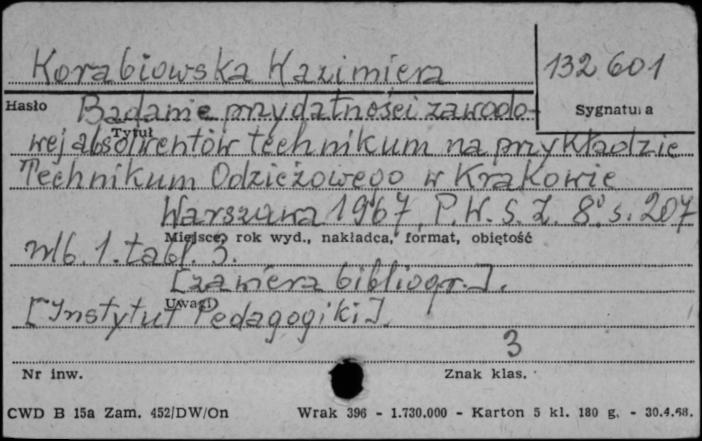 Korabiowska Kazimiera
132 601
Hasło
Badanie przydatności zawodo-
Sygnatura
Tytuł
wej absolwentów technikum na przykładzie
Technikum Odzieżowego w Krakowie
Warszawa 1967, P.W.S.Z. 8° s. 207
Miejsce, rok wyd., nakładca, format, objętość
nlb. 1. tabl. 3.
[zawiera bibliogr.].
Uwagi
[Instytut Pedagogiki].
3
Nr inw.
Znak klas.
CWD B 15a Zam. 452/DW/On
Wrak 396 - 1.730.000 - Karton 5 kl. 180 g. - 30.4.68.